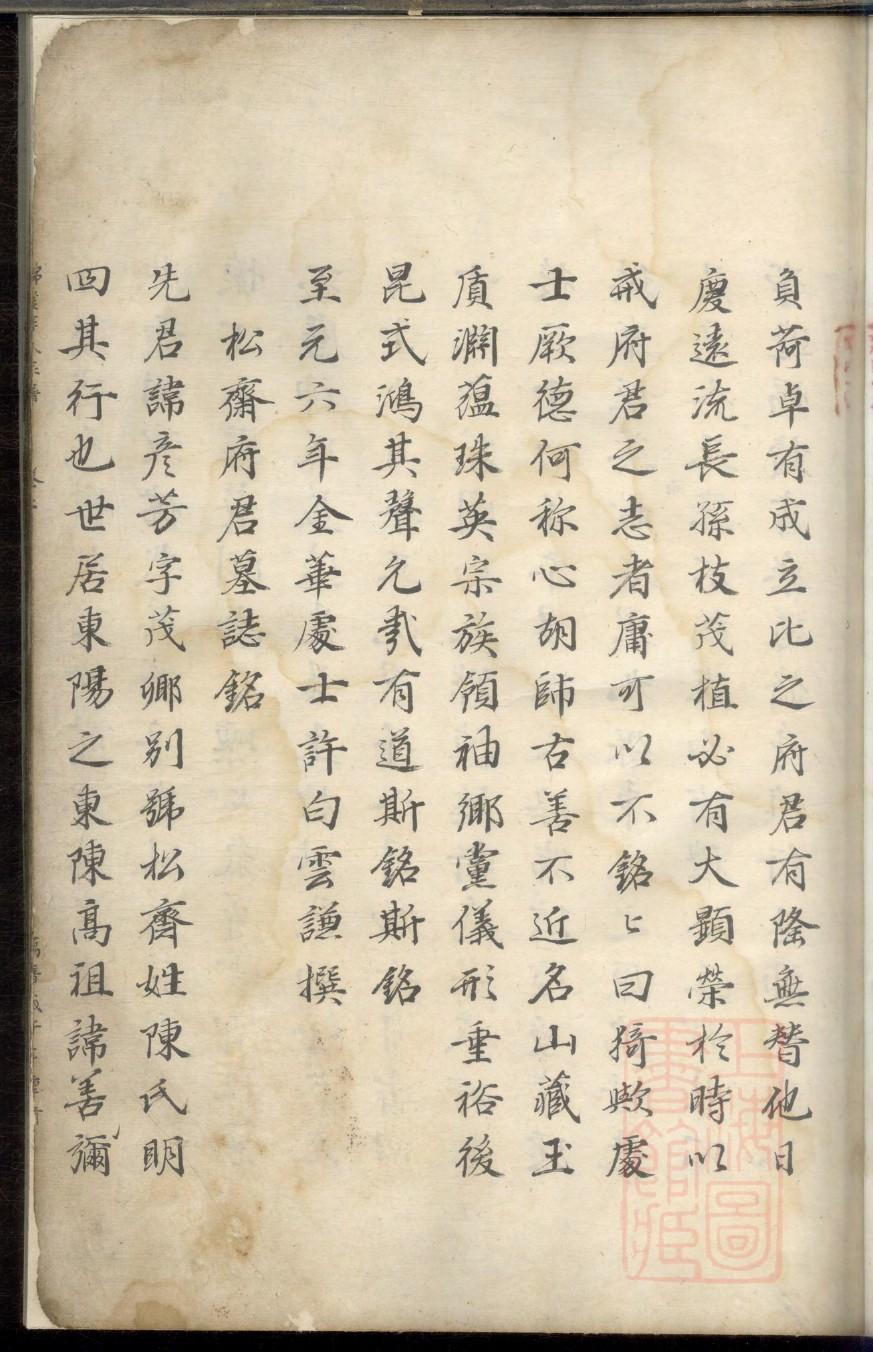 負荷卓有成立比之府君有隆無替他日
慶遠流長孫枝茂植必有大顯榮於時以
戒府君之志者庸可以不銘〻曰猗歟處
士厥德何称心胡師古善不近名山藏玉
質淵蕴珠英宗族領袖鄉黨儀形垂裕後
昆式鴻其聲允㦲有道斯銘斯銘
至元六年金華處士許白雲謙撰
松齋府君墓誌銘
先君諱彦芳字茂鄉別號松齊姓陳氏明
四其行也世居東陽之東陳高祖諱善彌
上海圖書館藏